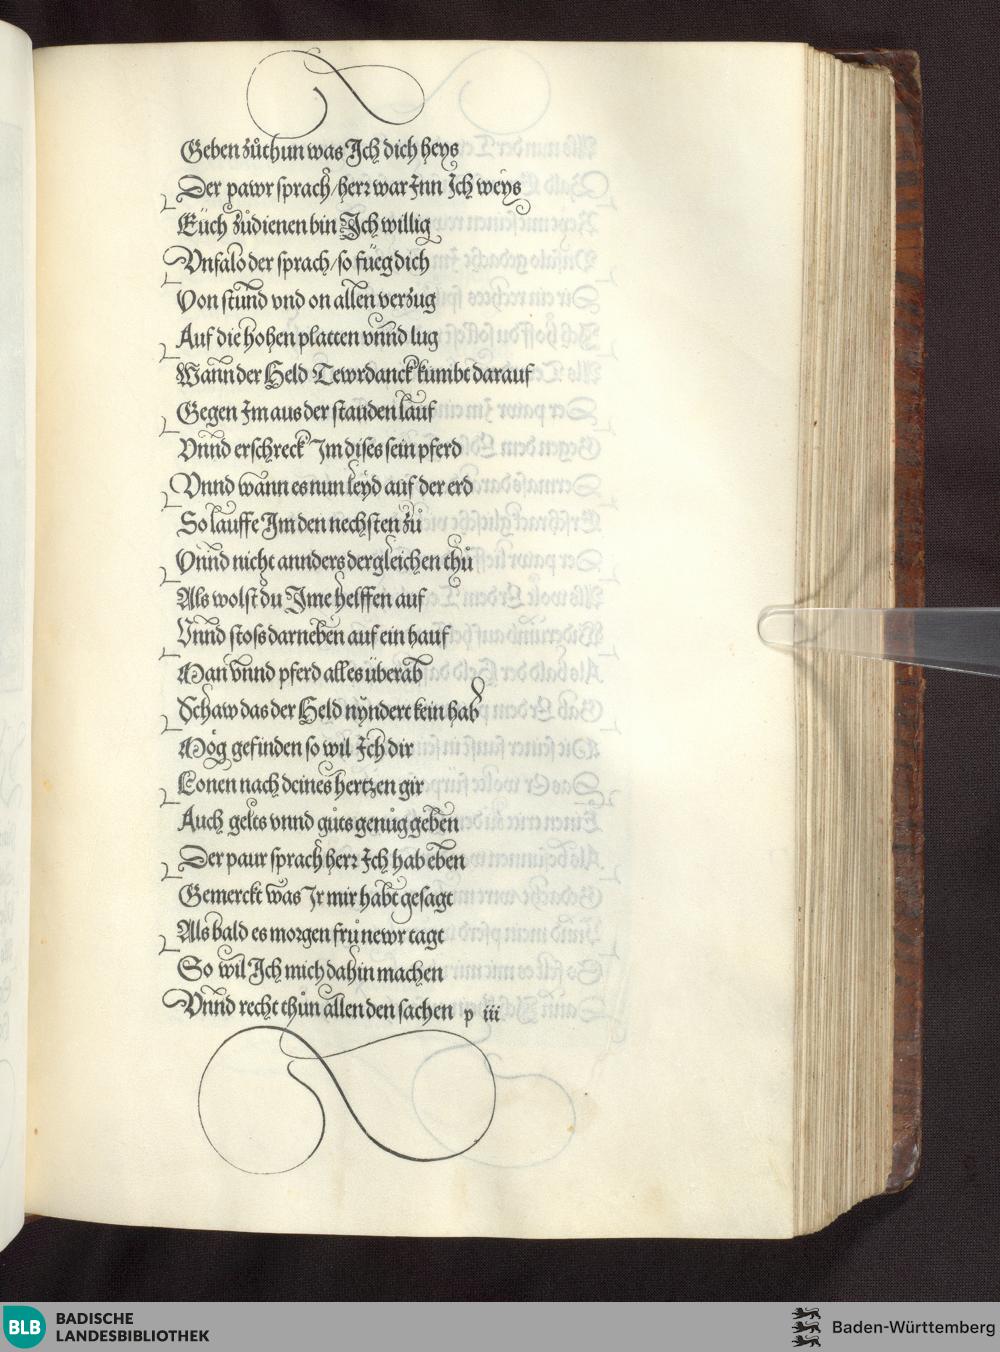 Geben zůthun was Ich dich heys
Der pawr sprach/herr war Inn Ich weys
Euch zůdienen bin Ich willig
Vnfalo der sprach/so fueg dich
Von stund vnd on allen verzug
Auf die hohen platten vnnd lug
Wann der Held Tewrdanck kumbt darauf
Gegen Im aus der stauden lauf
Vnnd erschreck Im dises sein pferd
Vnnd wann es nun leyd auf der erd
So lauffe Im den nechsten zů
Vnnd nicht annders dergleichen thů
Als wolst du Ime helffen auf
Vnnd stoss darneben auf ein hauf
Man vnnd pferd alles überab
Schaw das der Held nyndert kein hab
Mög gefinden so wil Ich dir
Lonen nach deines hertzen gir
Auch gelts vnnd gůts genůg geben
Der paur sprach herr Ich hab eben
Gemerckt was Ir mir habt gesagt
Als bald es morgen frů newr tagt
So wil Ich mich dahin machen
Vnnd recht thůn allen den sachen p iii
BLB BADISCHE
LANDESBIBLIOTHEK
Baden-Württemberg